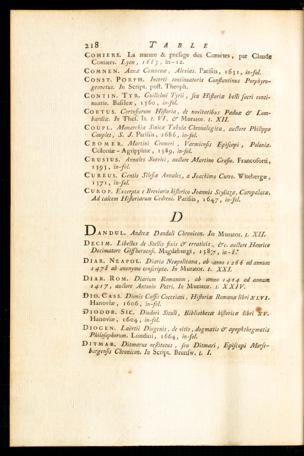 218 TABLE
COMIERS. La nature & présage des Cometes, par Claude
Comiers. Lyon, 1665, in-12.
COMNEN. Annæ Comnenæ, Alexias. Parisiis, 1651, in-fol.
CONST. PORPH. Incerti continuatoris Constantinus Porphyro-
genetus. In Script. post. Theoph.
CONTIN. TYR. Guillelmi Tyrii, seu Historiæ belli sacri conti-
nuatio. Basileæ, 1560, in-fol.
COETUS. Cortusorum Historia, de novitatibus Paduæ & Lom-
bardiæ. In Thes. It. t. VI. & Murator. t. XII.
COUPL. Monarchiæ Sinicæ Tabula Chronologica, auctore Philippo
Couplet, S. J. Parisiis, 1686, in-fol.
CROMER. Martini Cromeri, Varmiensis Episcopi, Polonia.
Coloniæ-Agrippinæ, 1589, in-fol.
CRUSIUS. Annales Suevici, auctore Martino Crusio. Francoforti,
1595, in-fol.
CUREUS. Gentis Silesiæ Annales, a Joachimo Cureo. Witebergæ,
1571, in-fol.
CUROP. Excerpta e Breviario historico Joannis Scylitzæ, Curopalatæ.
Ad calcem Historiarum Cedreni. Parisiis, 1647, in-fol.
D
DANDUL. Andreæ Danduli Chronicon. In Murator. t. XII.
DECIM. Libellus de Stellis fixis & erraticis, &c. auctore Henrico
Decimatore Giffhornensi. Magdeburgi, 1587, in-8.°
DIAR. NEAPOL. Diaria Neapolitana, ab anno 1266 ad annum
1478 ab anonymo conscripta. In Murator. t. XXI.
DIAR. ROM. Diarium Romanum, ab anno 1404 ad annum
1417, auctore Antonio Petri. In Murator. t. XXIV.
DIO. CASS. Dionis Cassii Cocceiani, Historiæ Romanæ libri XLVI.
Hanoviæ, 1606, in-fol.
DIODOR. SIC. Diodori Siculi, Bibliothecæ historicæ libri XV.
Hanoviæ, 1604, in-fol.
DIOGEN. Laertii Diogenis, de vitis, dogmatis & apophthegmatis
Philosophorum. Londini, 1664, in-fol.
DITMAR. Ditmarus restitutus, seu Ditmari, Episcopi Merse-
burgensis Chronicon. In Script. Brunsw. t. I.